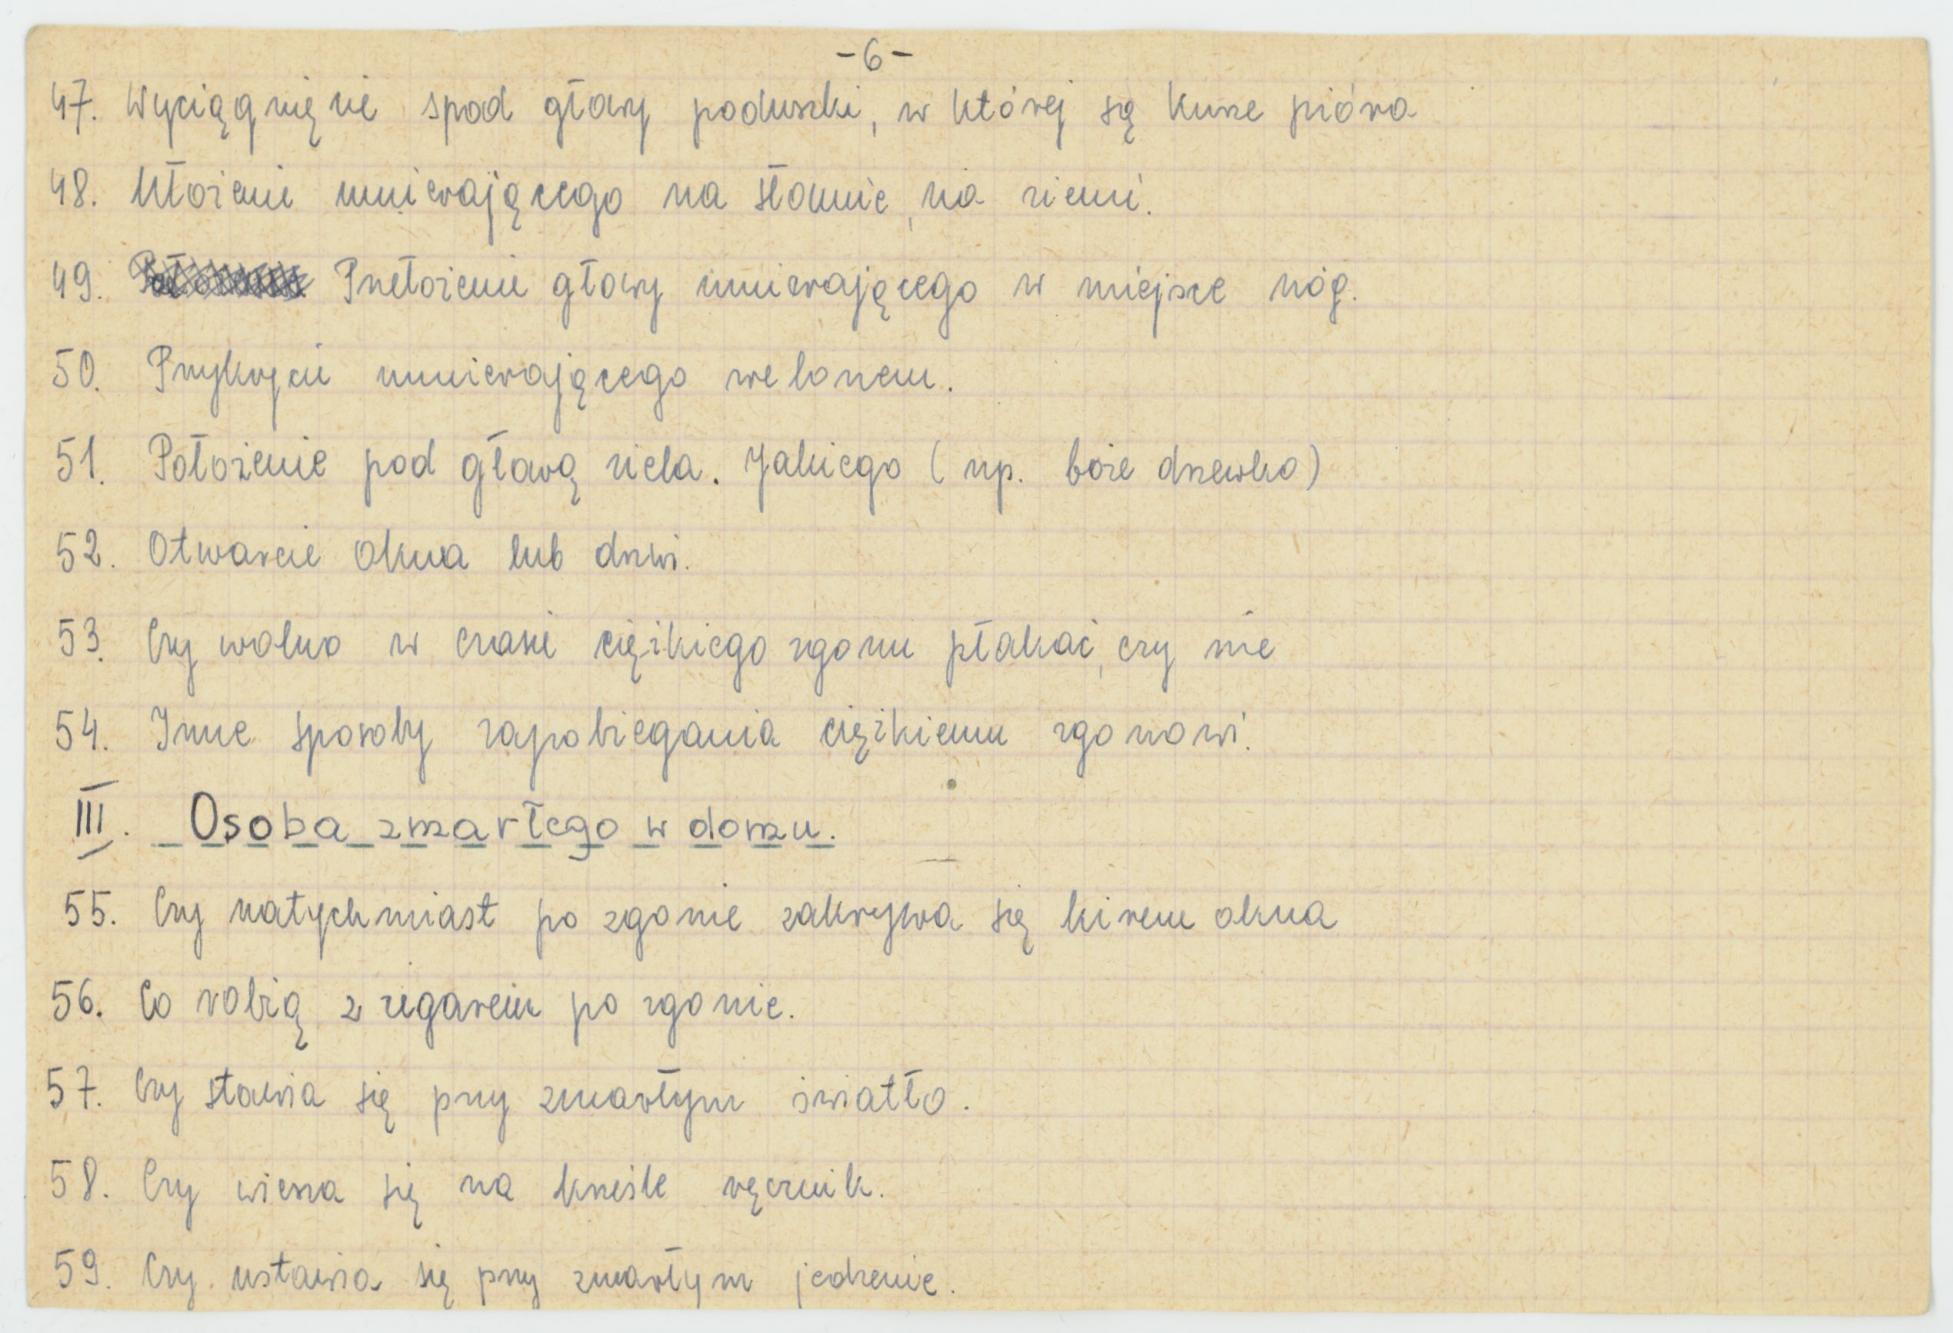 -6-
47. Wyciągnięcie spod głowy poduszki, w której są kurze pióra
48. Ułożenie umierającego na słomie, na ziemi.
49. Przełożenie głowy umierającego w miejsce nóg.
50. Przykrycie umierającego welonem.
51. Położenie pod głową ziela. Jakiego (np. boże drzewko)
52. Otwarcie okna lub drzwi.
53. Czy wolno w czasie ciężkiego zgonu płakać, czy nie
54. Inne sposoby zapobiegania ciężkiemu zgonowi.
III. Osoba zmarłego w domu.
55. Czy natychmiast po zgonie zakrywa się kirem okna
56. Co robią z zegarem po zgonie.
57. Czy stawia się przy zmarłym światło.
58. Czy wiesza się na krześle ręcznik.
59. Czy ustawia się przy zmarłym jedzenie.